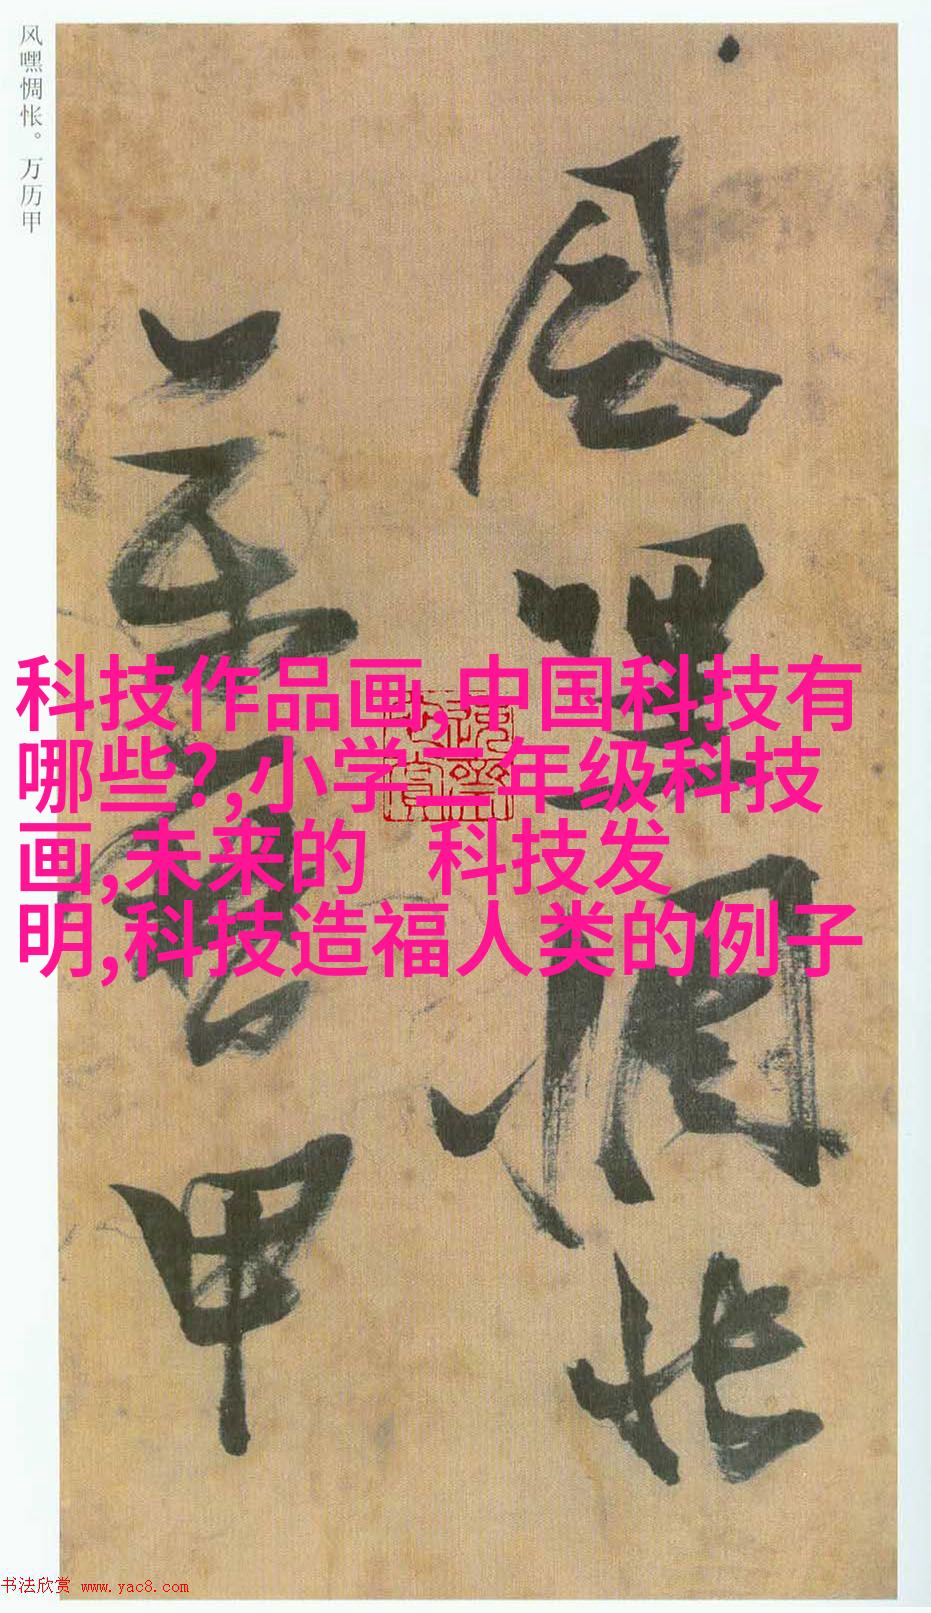 风嘿惆怅。万历甲
风
嘿
惆
怅
万
历
甲
科技作品画,中国科技有
哪些?,小学二年级科技
画,未来的 科技发
明,科技造福人类的例子
书法欣赏 www.yac8.com